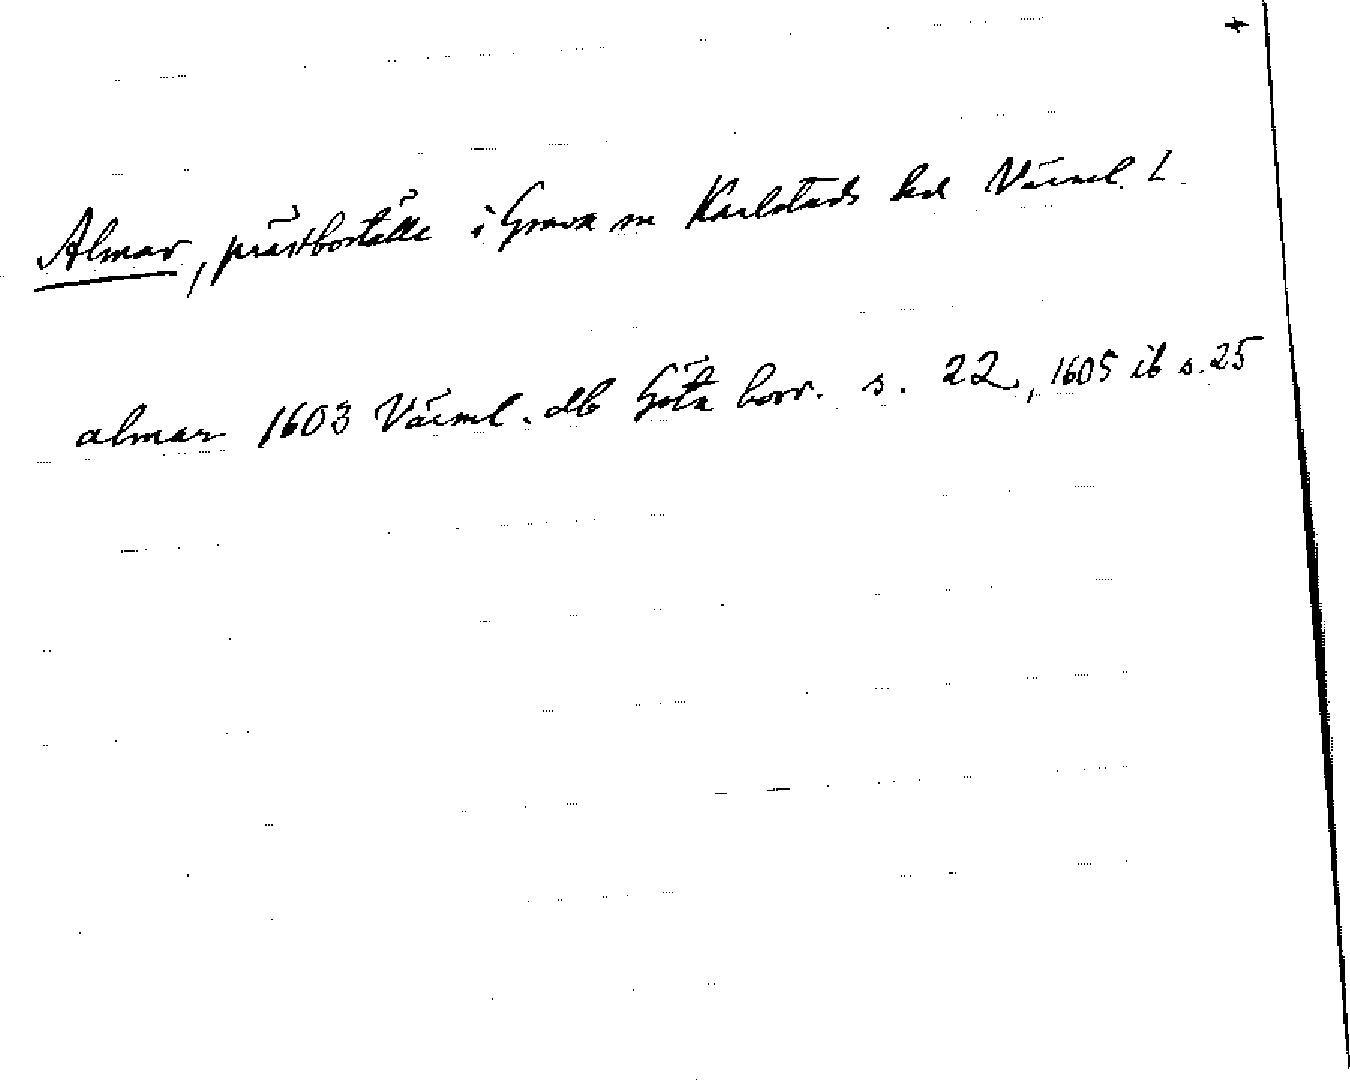 Almar, prästboställe i Grava sn Karlstads hd Värml. L.
almar 1603 Värml. db Göta hovr. s. 22, 1605 ib s. 25